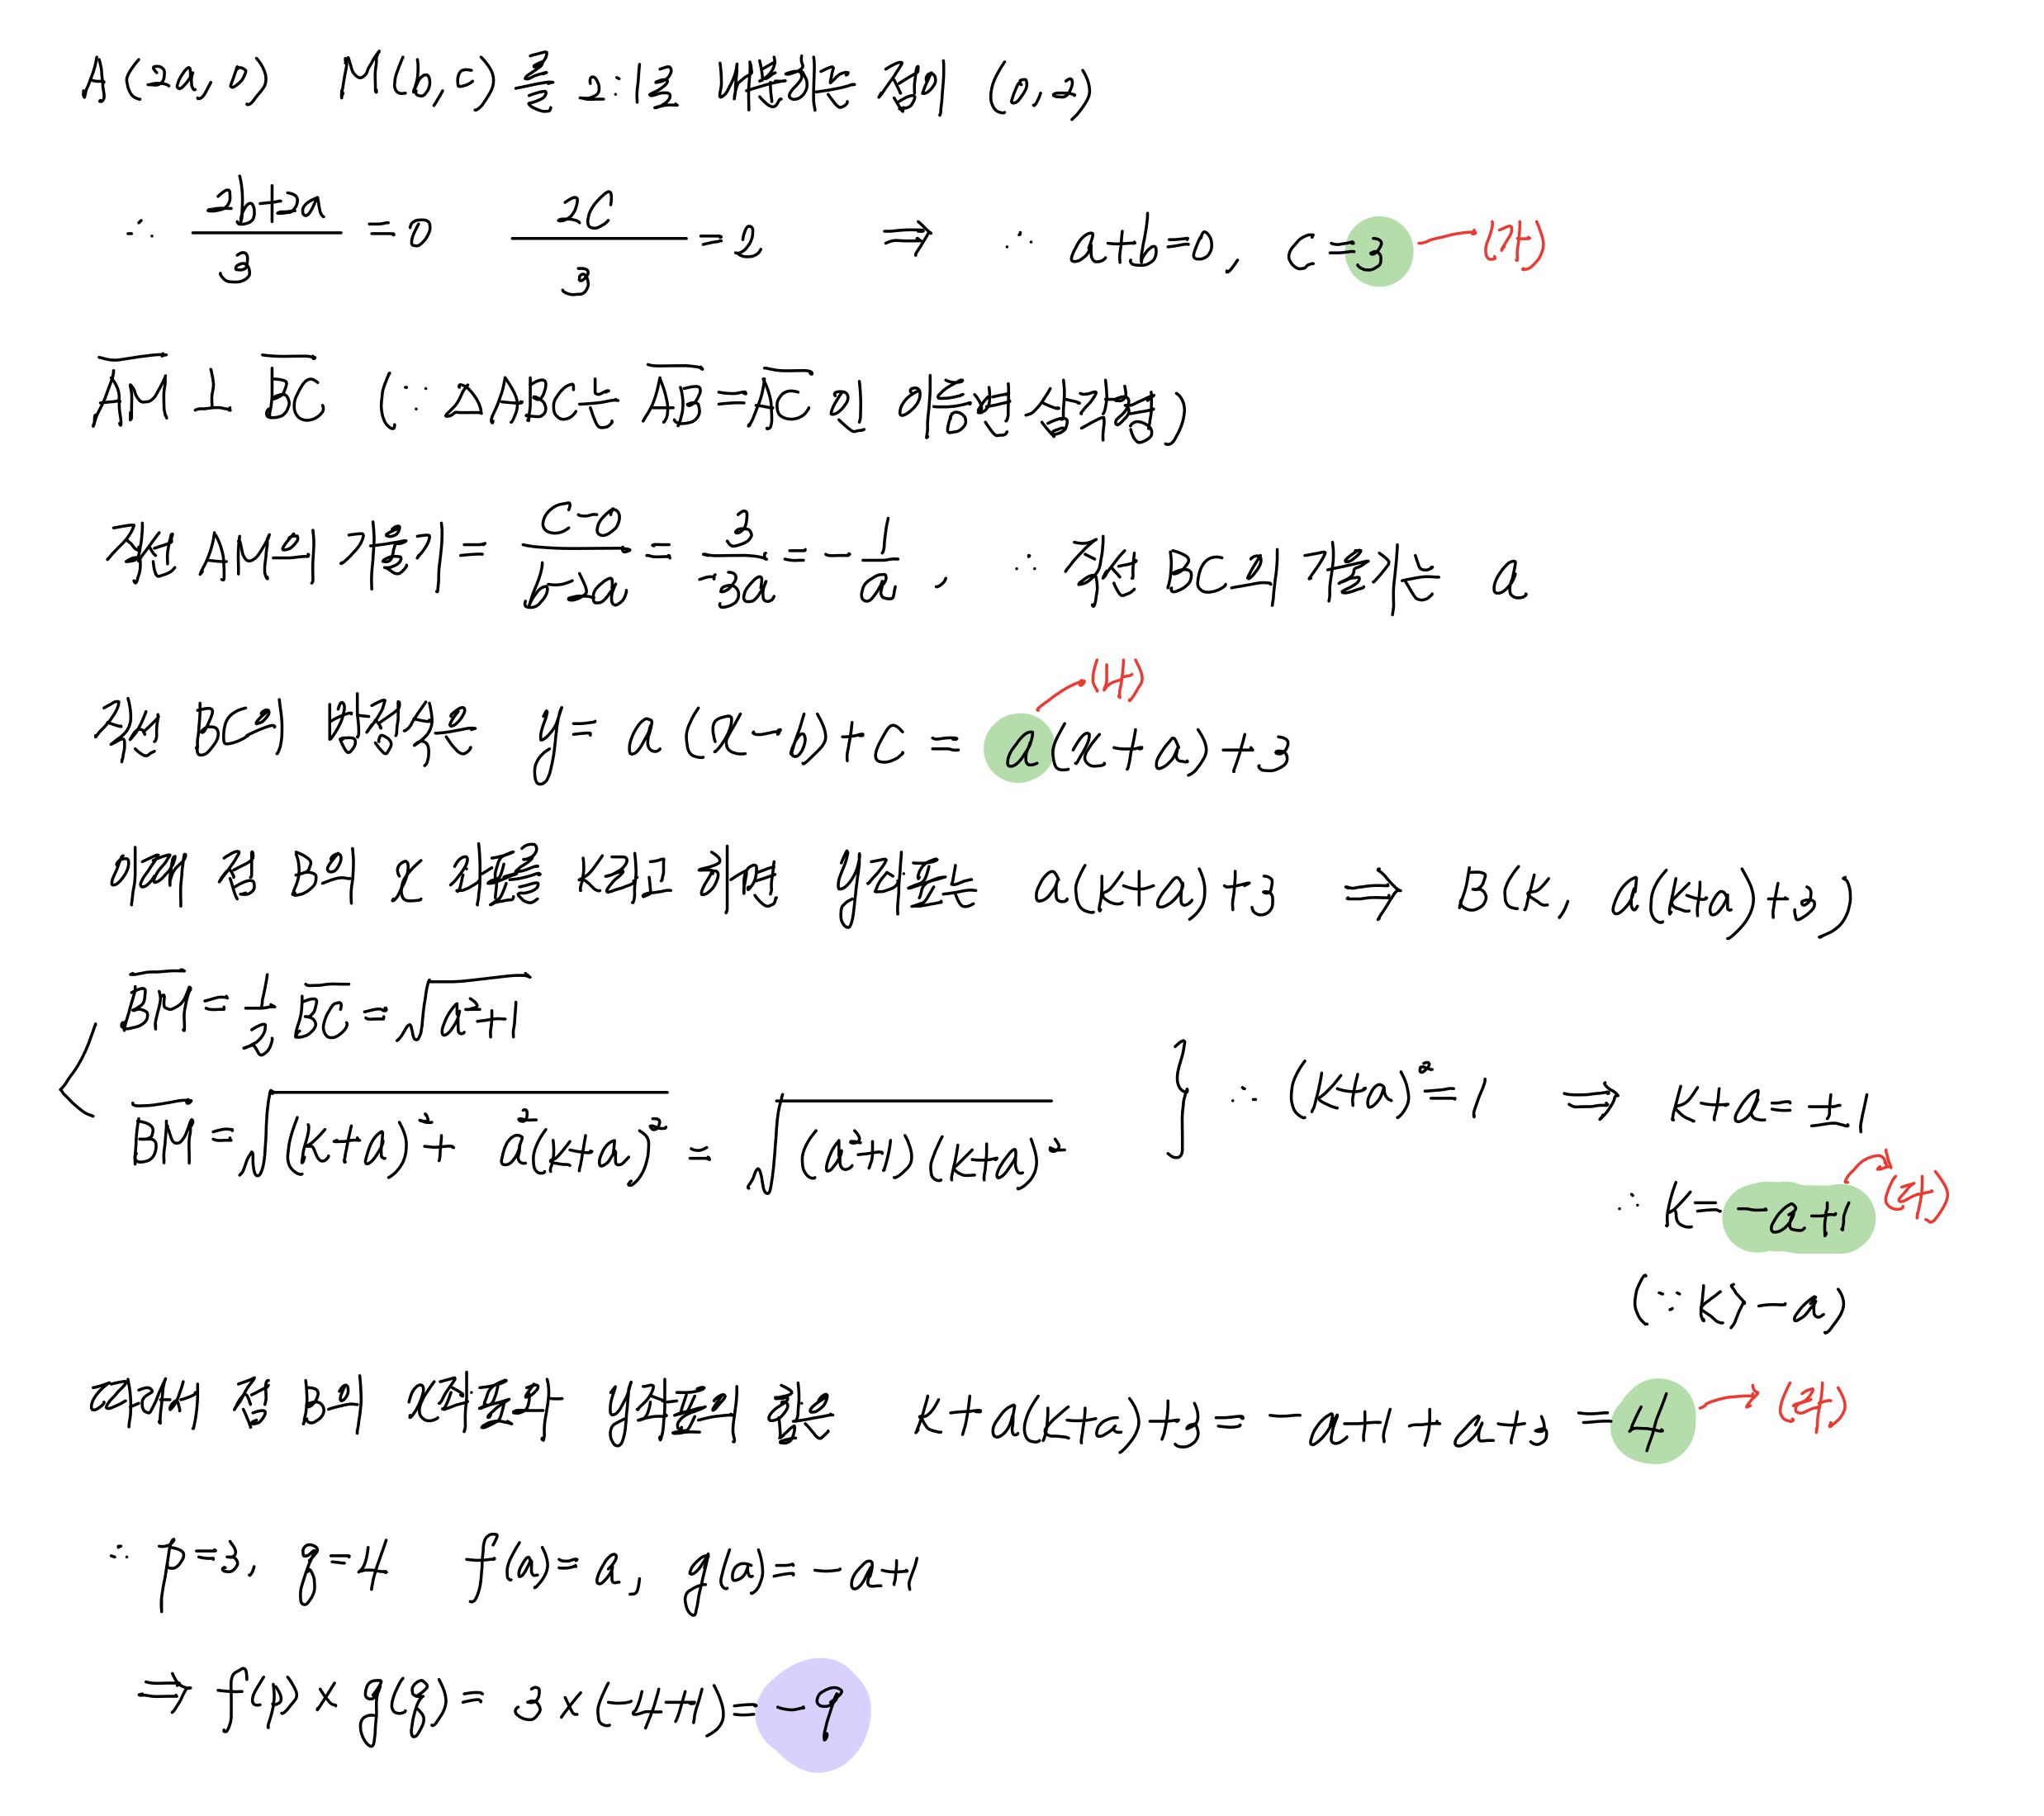 A(2a, 0) M(b, c)를 2:1로 내분하는 점이 (0, 2)
∴ (2b+2a)/3 = 0 2c/3 = 2 ⇒ ∴ a+b=0, c=3 (가)
A̅M̅ ⊥ B̅C̅ (∵ △ABC는 A̅B̅=A̅C̅인 이등변 삼각형)
직선 AM의 기울기 = (c-0)/(b-2a) = 3/(-3a) = -1/a, ∴ 직선 BC의 기울기는 a
직선 BC의 방정식은 y = a(x-b)+c = a(x+a)+3 (나)
이때 점 B의 x 좌표를 k라고 하면 y좌표는 a(k+a)+3 ⇒ B(k, a(k+a)+3)
B̅M̅ = 1/2 B̅C̅ = √(a²+1)
B̅M̅ = √((k+a)²+a²(k+a)²) = √((a²+1)(k+a)²) } ∴ (k+a)²=1 ⇒ k+a=±1
∴ k=-a+1 (다)
(∵ k>-a)
따라서 점 B의 x좌표와 y좌표의 합은 k+a(k+a)+3 = -a+1+a+3 = 4 (라)
∴ p=3, q=4 f(a)=a, g(a)=-a+1
⇒ f(p)×g(q) = 3×(-4+1) = -9